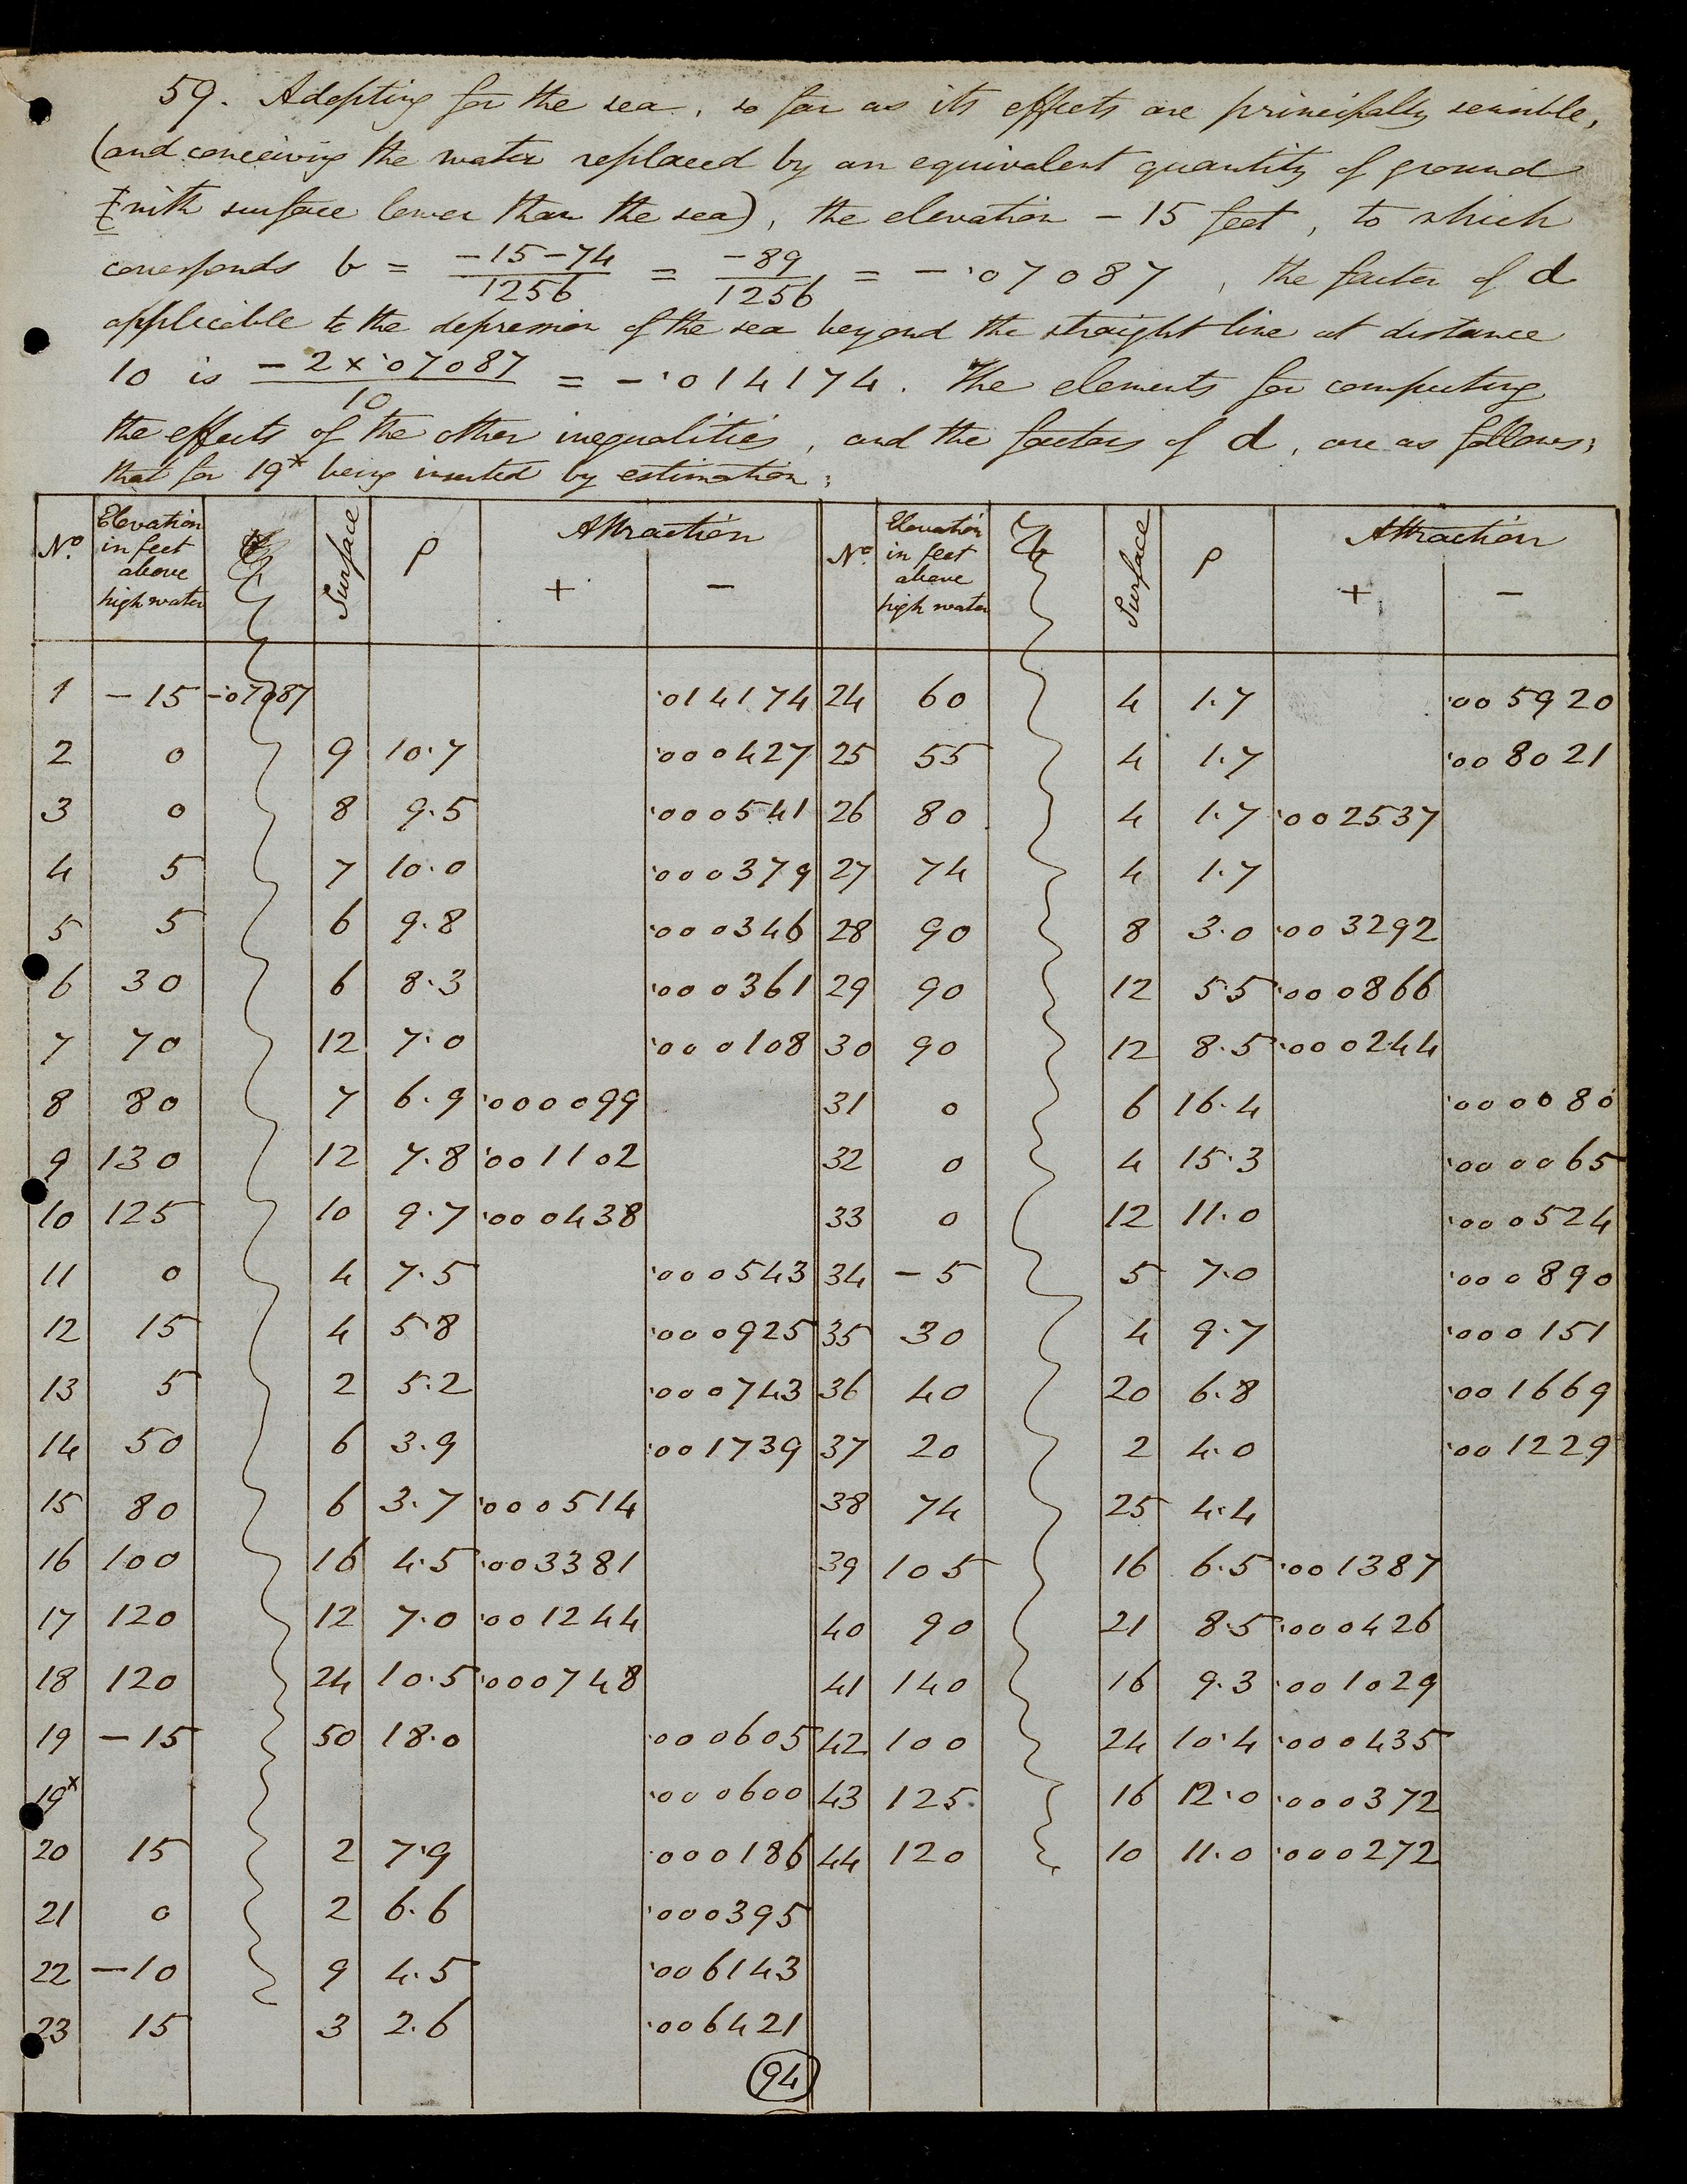 59. Adopting for the sea, so far as its effects are principally sensible,
(and conceiving the water replaced by an equivalent quantity of ground
with surface lower than the sea), the elevation -15 feet, to which
corresponds b = -15-74/1256 = -89/1256 = -·07087, the factor of d
applicable to the depression of the sea beyond the straight line at distance
10 is -2×·07087/10 = -·014174. The elements for computing
the effects of the other inequalities, and the factors of d, are as follows;
that for 19* being inserted by estimation:
No. Elevation in feet above high water Surface ρ Attraction + - No. Elevation in feet above high water Surface ρ Attraction + -
1 -15 -·07087 ·014174 24 60 4 1.7 ·005920
2 0 9 10.7 ·000427 25 55 4 1.7 ·008021
3 0 8 9.5 ·000541 26 80 4 1.7 ·002537
4 5 7 10.0 ·000379 27 74 4 1.7
5 5 6 9.8 ·000346 28 90 8 3.0 ·003292
6 30 6 8.3 ·000361 29 90 12 5.5 ·000866
7 70 12 7.0 ·000108 30 90 12 8.5 ·000244
8 80 7 6.9 ·000099 31 0 6 16.4 ·000080
9 130 12 7.8 ·001102 32 0 4 15.3 ·000065
10 125 10 9.7 ·000438 33 0 12 11.0 ·000524
11 0 4 7.5 ·000543 34 -5 5 7.0 ·000890
12 15 4 5.8 ·000925 35 30 4 9.7 ·000151
13 5 2 5.2 ·000743 36 40 20 6.8 ·001669
14 50 6 3.9 ·001739 37 20 2 4.0 ·001229
15 80 6 3.7 ·000514 38 74 25 4.4
16 100 16 4.5 ·003381 39 105 16 6.5 ·001387
17 120 12 7.0 ·001244 40 90 21 8.5 ·000426
18 120 24 10.5 ·000748 41 140 16 9.3 ·001029
19 -15 50 18.0 ·000605 42 100 24 10.4 ·000435
19* ·000600 43 125 16 12.0 ·000372
20 15 2 7.9 ·000186 44 120 10 11.0 ·000272
21 0 2 6.6 ·000395
22 -10 9 4.5 ·006143
23 15 3 2.6 ·006421
94